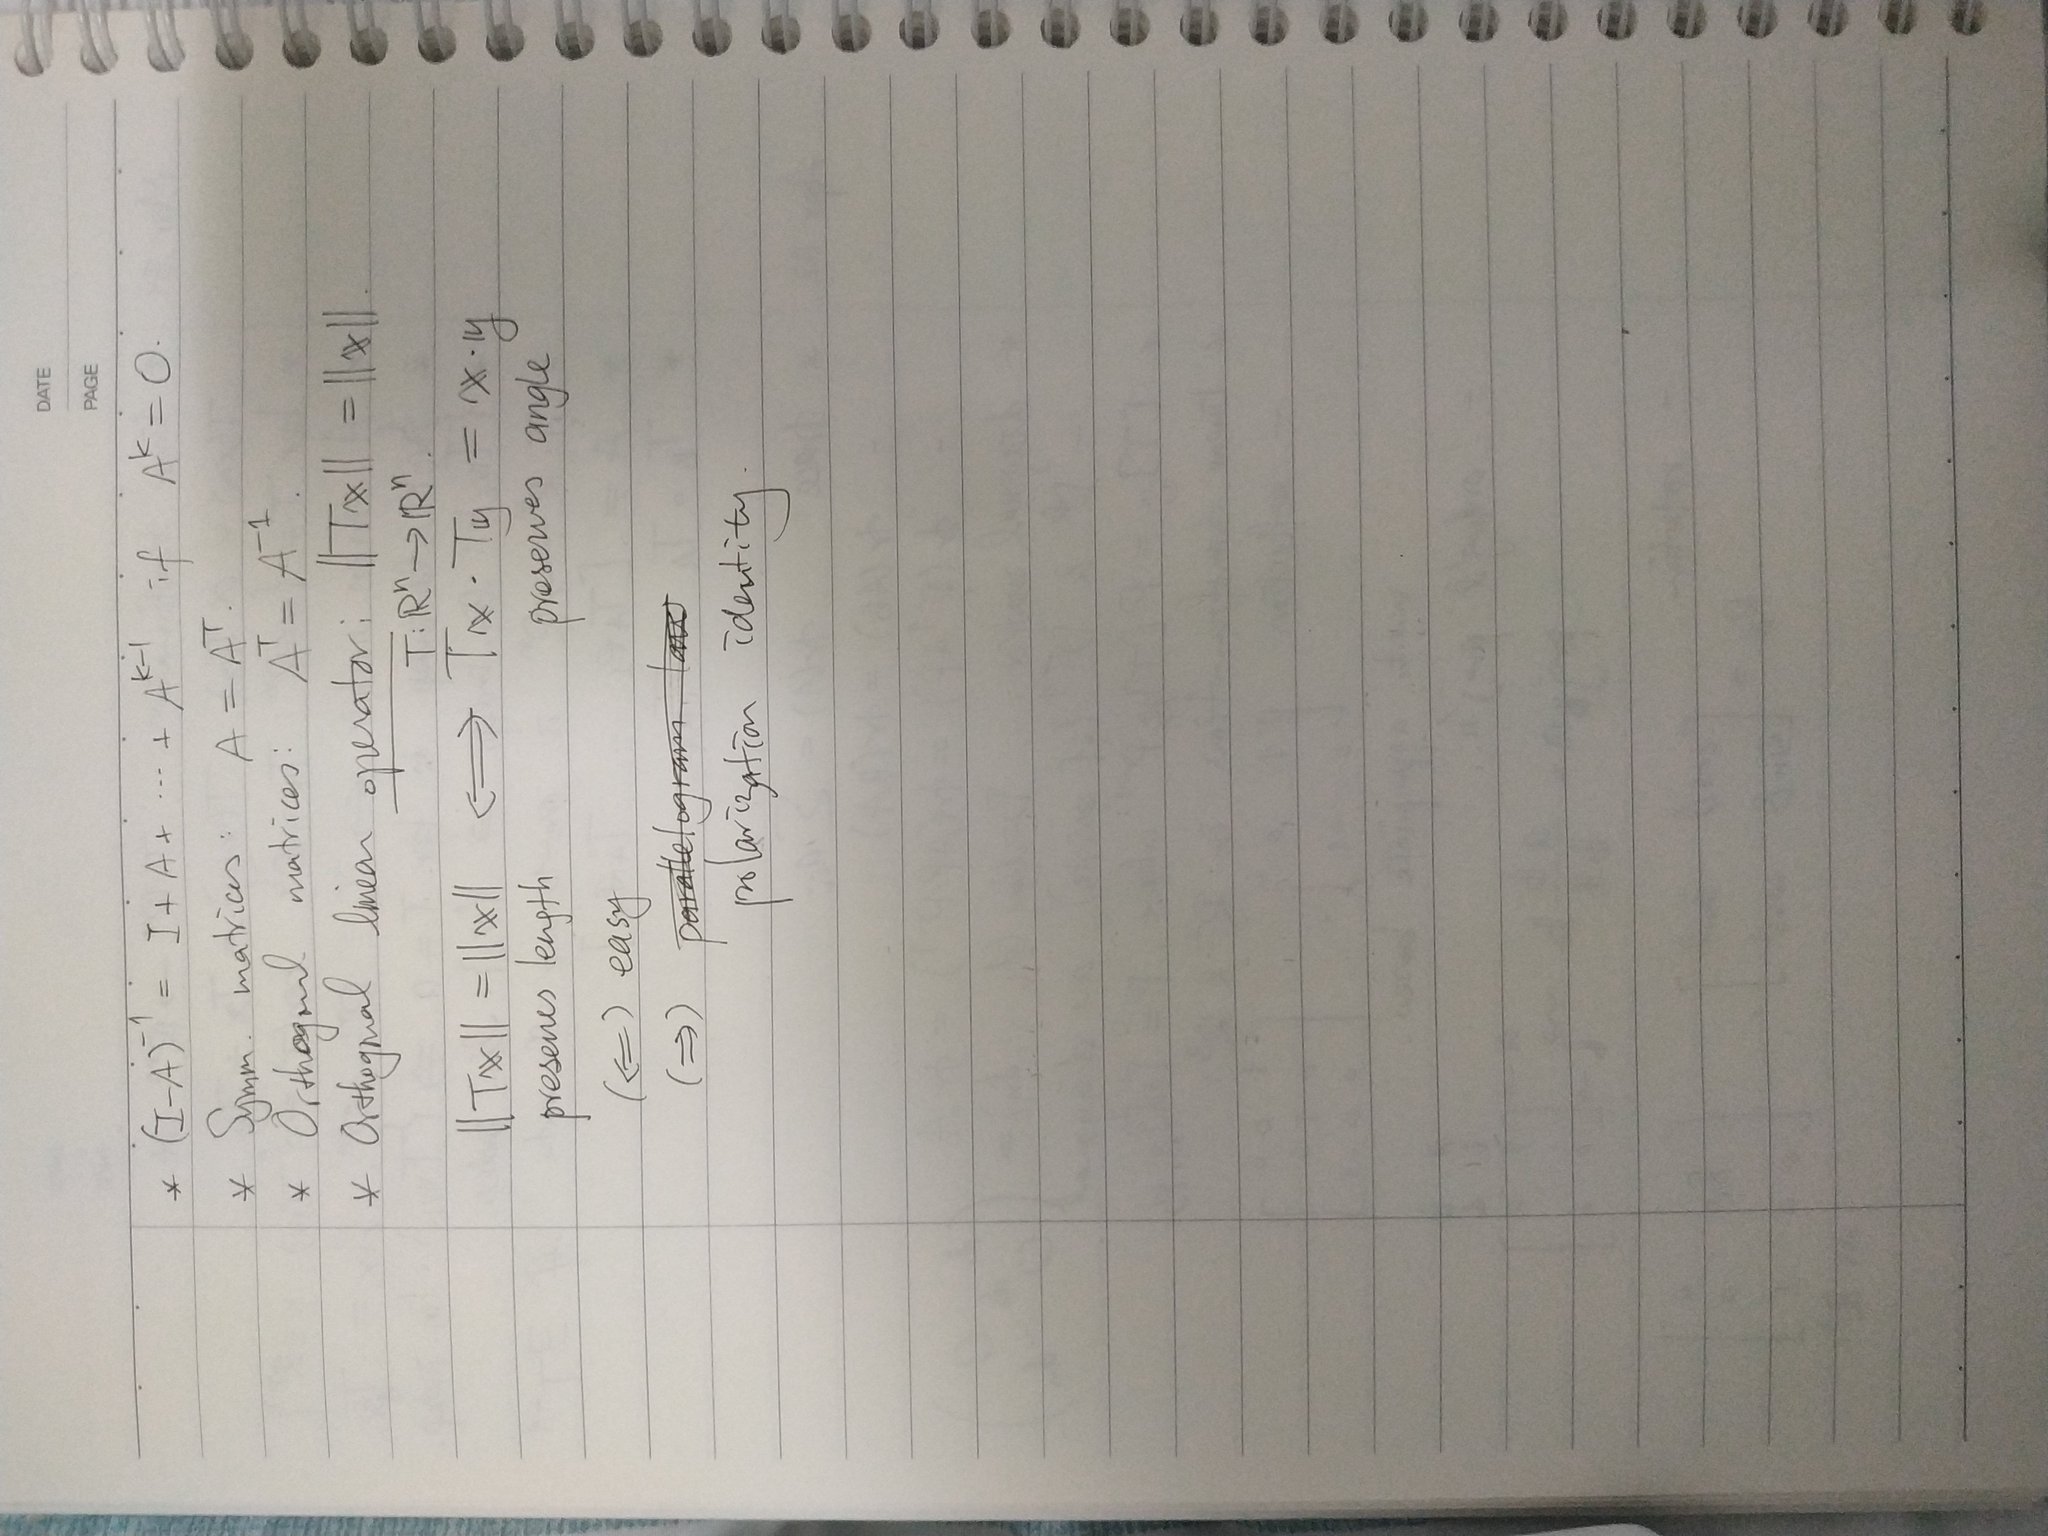 DATE
PAGE
* (I-A)⁻¹ = I + A + ... + Aᵏ⁻¹ if Aᵏ = 0.
* Symm. matrices: A = Aᵀ.
* Orthogonal matrices: Aᵀ = A⁻¹.
* Orthogonal linear operator: ||Tx|| = ||x||.
T: ℝⁿ → ℝⁿ.
||Tx|| = ||x|| ⟺ Tx · Ty = x · y
preserves length preserves angle
(⇐) easy
(⇒) parallelogram law
polarization identity.